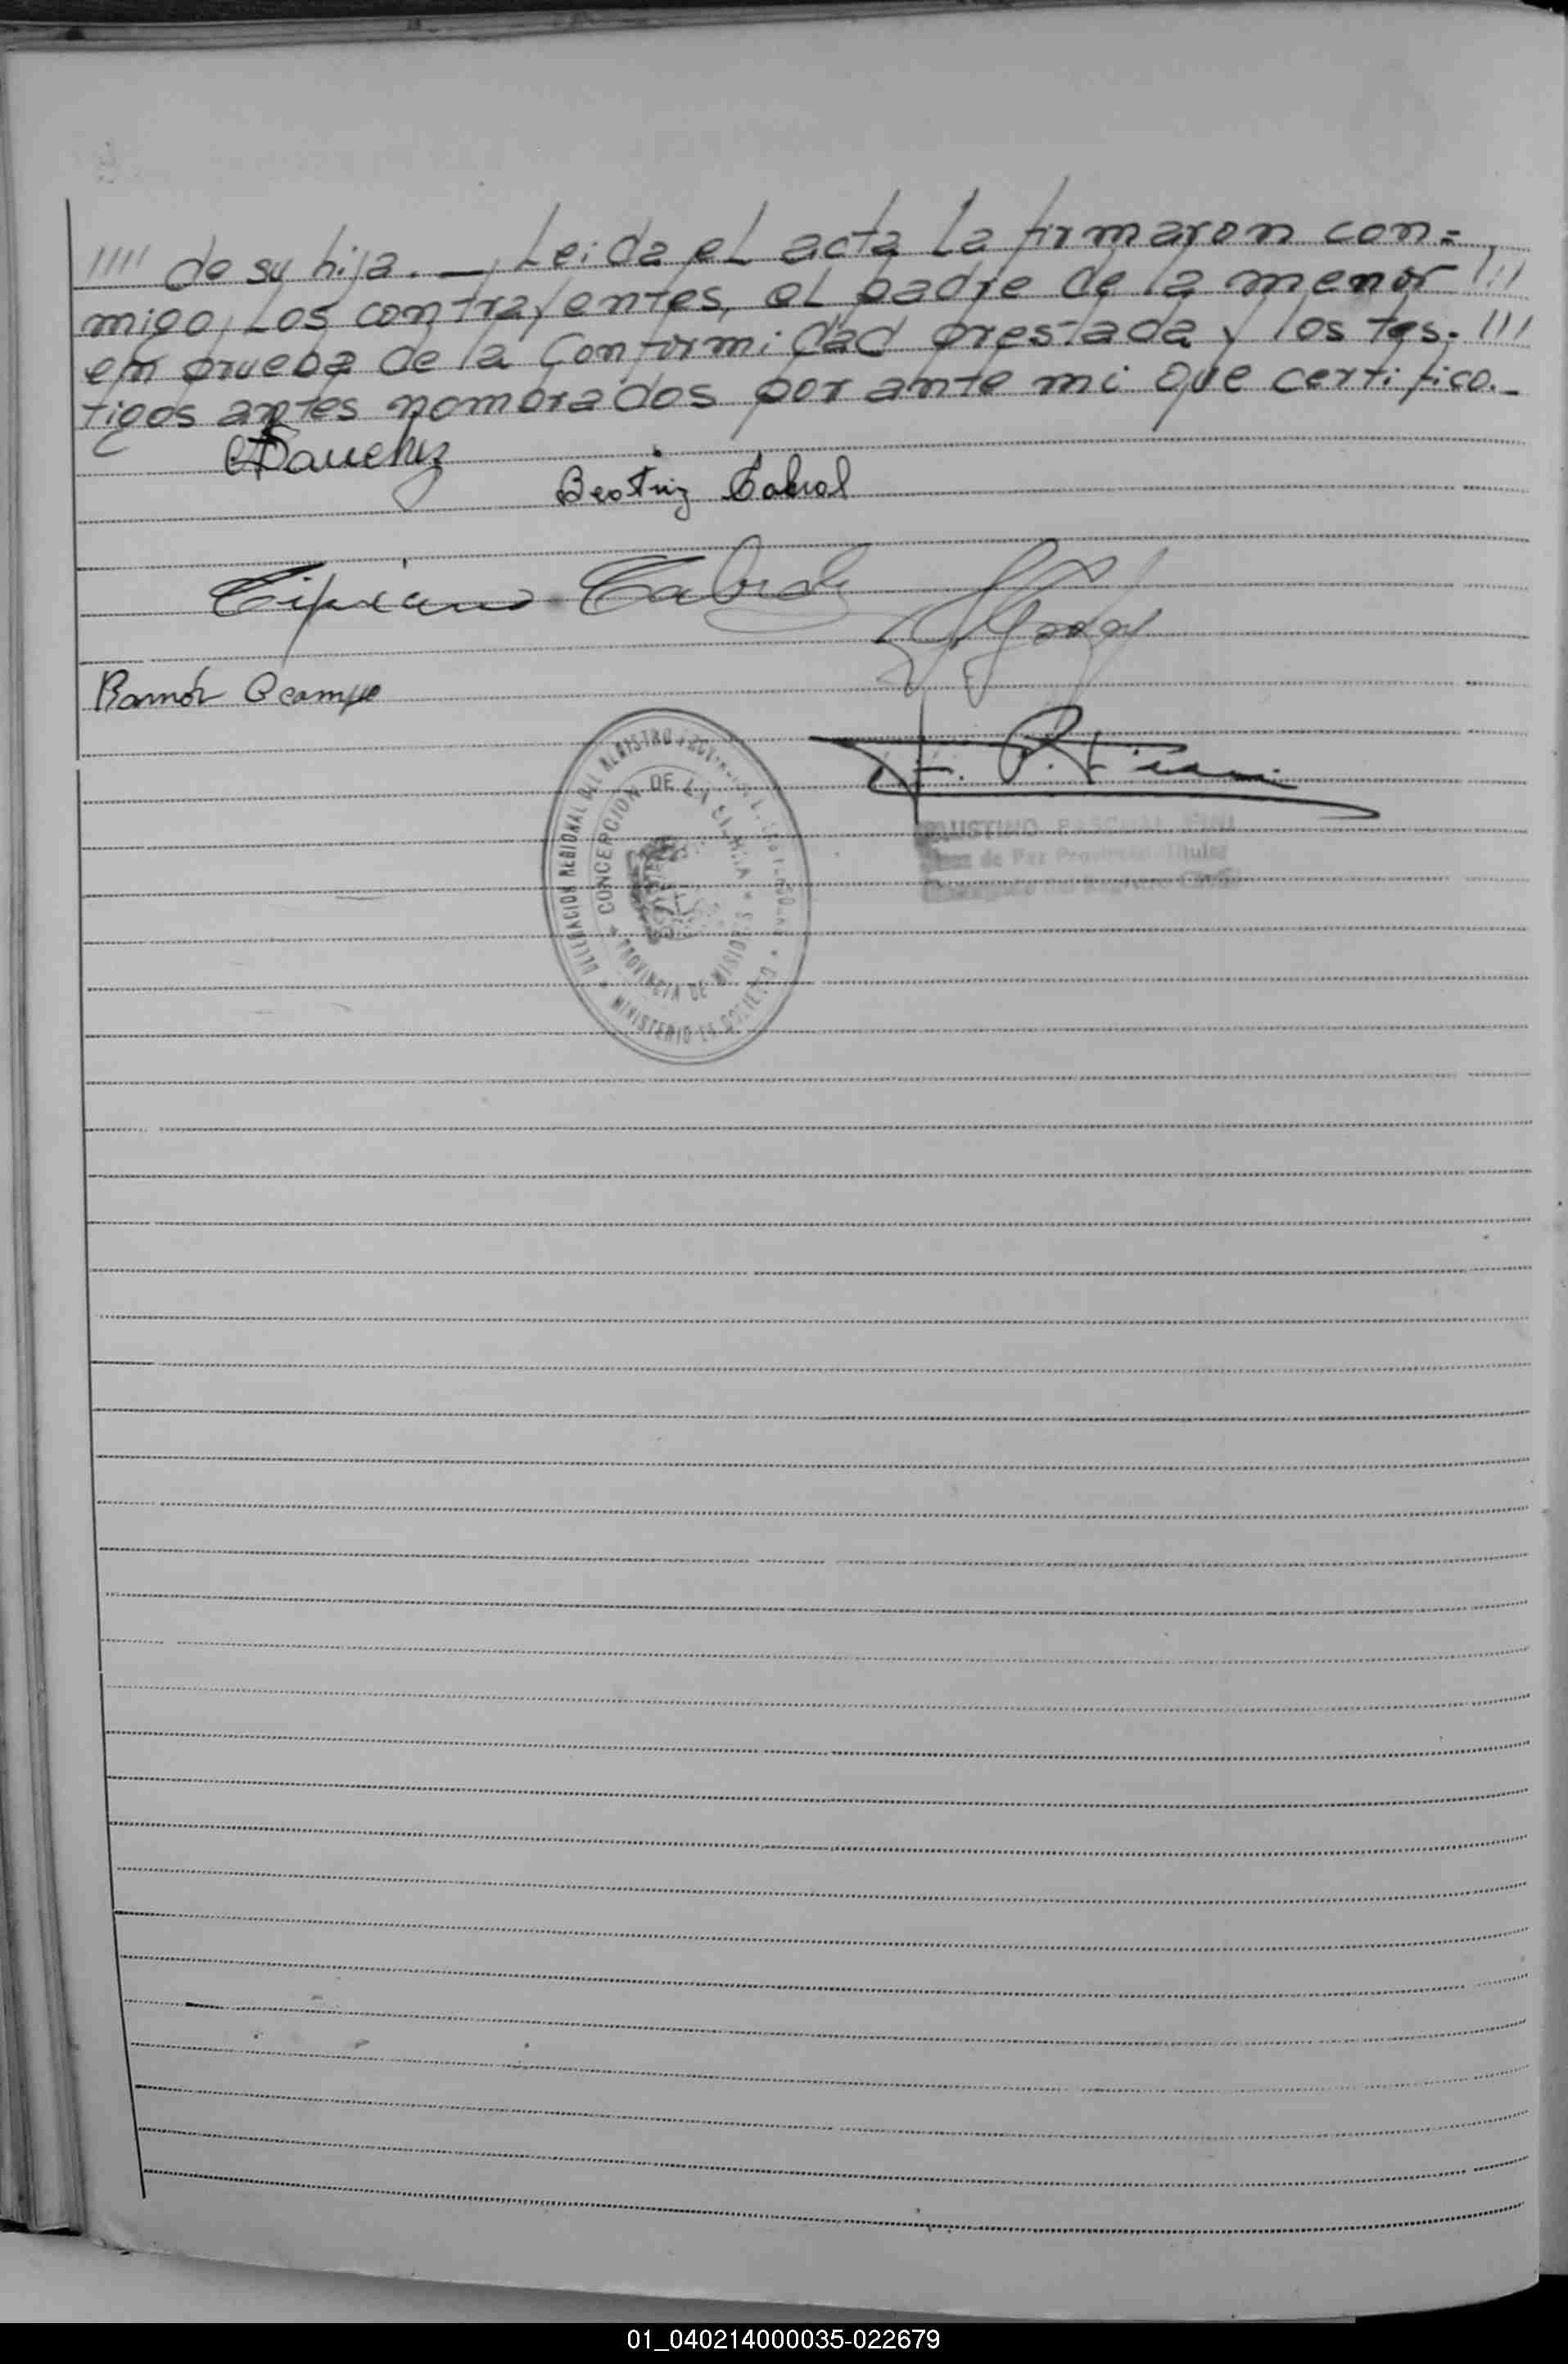 //// de su hija. — Leida el acta la firmaron con=
migo, Los contrayentes, el padre de la menor ///
em prueba de la Conformidad prestada y los tes- ///
tigos antes nombrados por ante mi que certifico.-
Sanchez
Beatriz Cabral
Cipriano Cabral
Godoy
Ramón Ocampo
F. P. Fini
DELEGACION REGIONAL DEL REGISTRO PROVINCIAL
CONCEPCION DE LA SIERRA
PROVINCIA DE MISIONES
MINISTERIO DE GOBIERNO
FAUSTINO PASCUAL FINI
Juez de Paz Provincial Titular
Encargado del Registro Civil
01_040214000035-022679